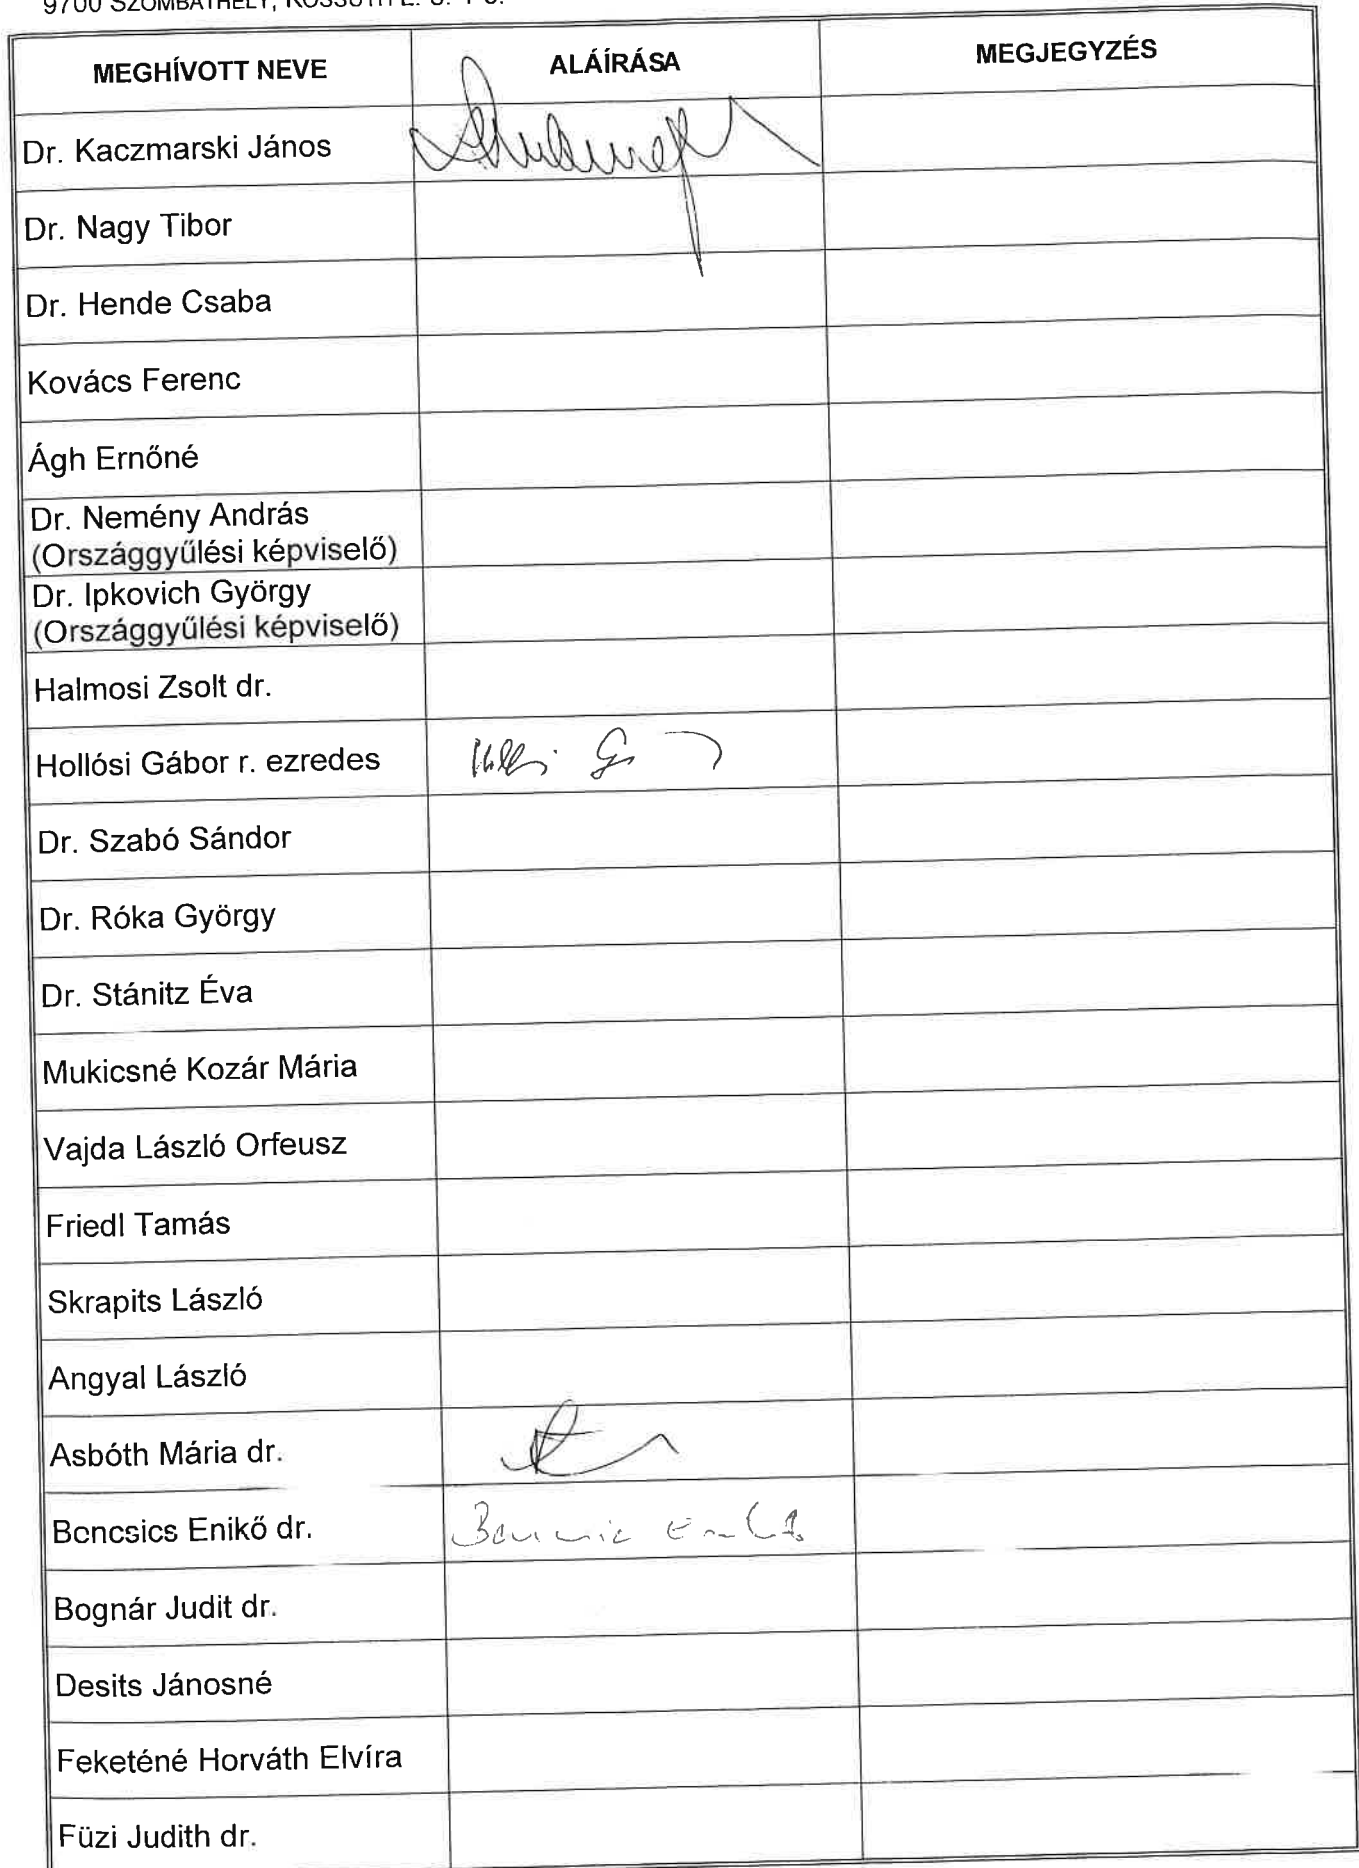 9700 SZOMBATHELY, KOSSUTH L. U. 1-3.
MEGHÍVOTT NEVE ALÁÍRÁSA MEGJEGYZÉS
Dr. Kaczmarski János
Dr. Nagy Tibor
Dr. Hende Csaba
Kovács Ferenc
Ágh Ernőné
Dr. Nemény András
(Országgyűlési képviselő)
Dr. Ipkovich György
(Országgyűlési képviselő)
Halmosi Zsolt dr.
Hollósi Gábor r. ezredes
Dr. Szabó Sándor
Dr. Róka György
Dr. Stánitz Éva
Mukicsné Kozár Mária
Vajda László Orfeusz
Friedl Tamás
Skrapits László
Angyal László
Asbóth Mária dr.
Bencsics Enikő dr.
Bognár Judit dr.
Desits Jánosné
Feketéné Horváth Elvíra
Füzi Judith dr.